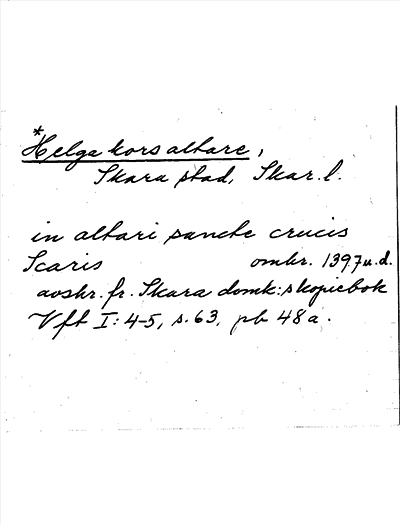 *Helga kors altare,
Skara stad, Skar. l.
in altari sancte crucis
Scaris omkr. 1397 u.d.
avskr. fr. Skara domk:s kopiebok
Vft I: 4-5, s. 63, pb 48a.